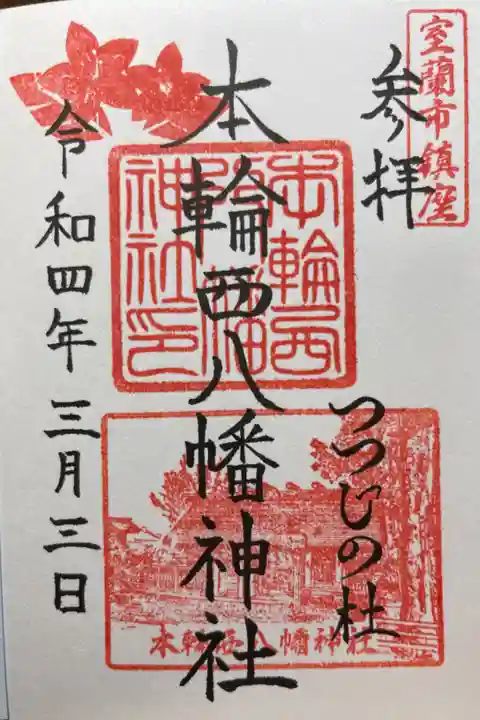 室蘭市鎮座
参拝
つつじの杜
本輪西八幡神社
本輪西八幡神社印
本輪西八幡神社
令和四年三月三日